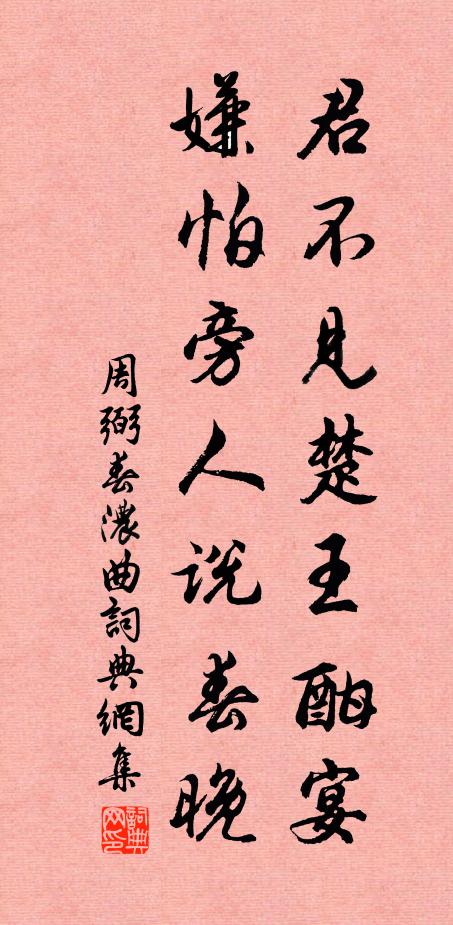 君不见楚王酣宴
嫌怕旁人说春晚
周弼春濃曲詞典網集
詞典网印